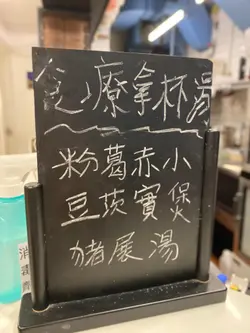 食療拿杯湯
粉葛赤小
豆茨實煲
猪展湯
消毒